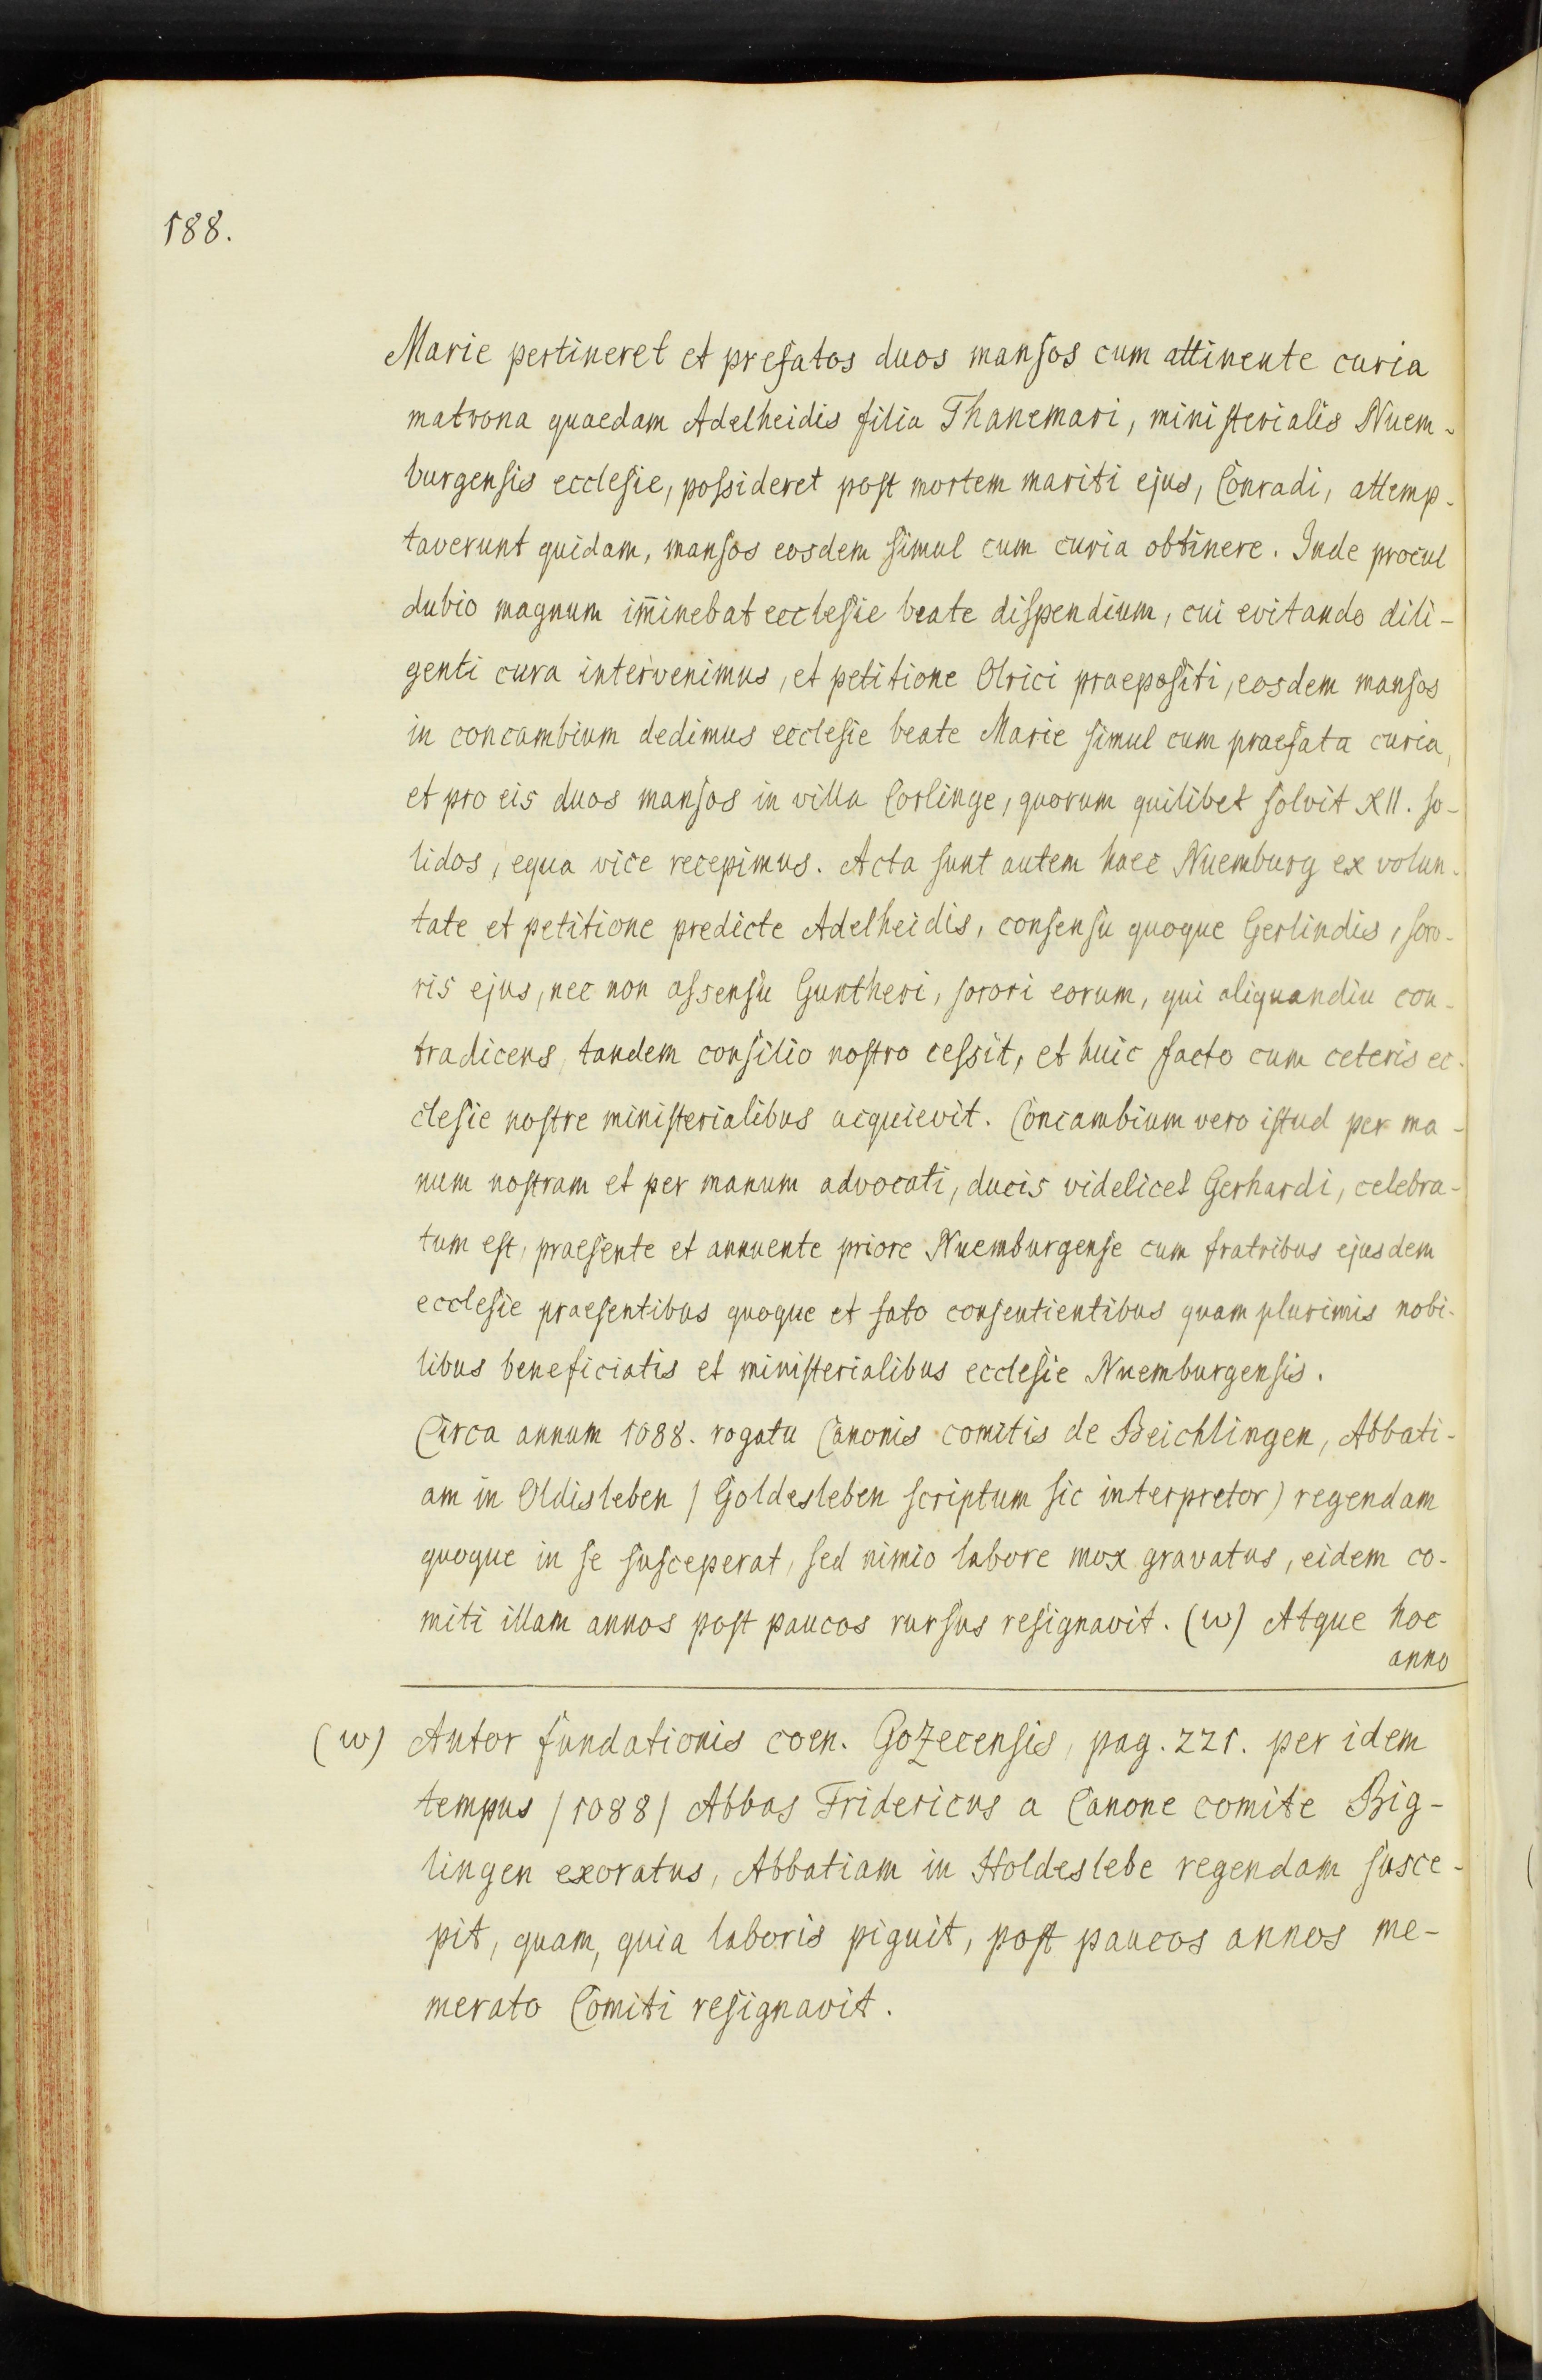 188.
Marie pertineret et prefatos duos mansos cum attinente curia
matrona quaedam Adelheidis filia Thanemari, ministerialis Nuem-
burgensis ecclesie, possideret post mortem mariti ejus, Conradi, attemp-
taverunt quidam, mansos eosdem simul cum curia obtinere. Inde procul
dubio magnum im̄inebat ecclesie beate dispendium, cui evitando dili-
genti cura intervenimus, et petitione Olrici praepositi, eosdem mansos
in concambium dedimus ecclesie beate Marie simul cum praefata curia,
et pro eis duos mansos in villa Corlinge, quorum quilibet solvit XII. so-
lidos, equa vice recepimus. Acta sunt autem haec Nuemburg ex volun-
tate et petitione predicte Adelheidis, consensu quoque Gerlindis, soro-
ris ejus, nec non assensu Guntheri, sorori eorum, qui aliquandiu con-
tradicens, tandem consilio nostro cessit, et huic facto cum ceteris ec-
clesie nostre ministerialibus acquievit. Concambium vero istud per ma-
num nostram et per manum advocati, ducis videlicet Gerhardi, celebra-
tum est, praesente et annuente priore Nuemburgense cum fratribus ejusdem
ecclesie praesentibus quoque et fato consentientibus quam plurimis nobi-
libus beneficiatis et ministerialibus ecclesie Nuemburgensis.
Circa annum 1088. rogatu Canonis comitis de Beichlingen, Abbati-
am in Oldisleben / Goldesleben scriptum sic interpretor) regendam
quoque in se susceperat, sed nimio labore mox gravatus, eidem co-
miti illam annos post paucos rursus resignavit. (w) Atque hoc
anno
(w) Autor fundationis coen. Gozecensis, pag. 221. per idem
tempus /1088/ Abbas Fridericus a Canone comite Big-
lingen exoratus, Abbatiam in Holdeslebe regendam susce-
pit, quam, quia laboris piguit, post paucos annos me-
merato Comiti resignavit.